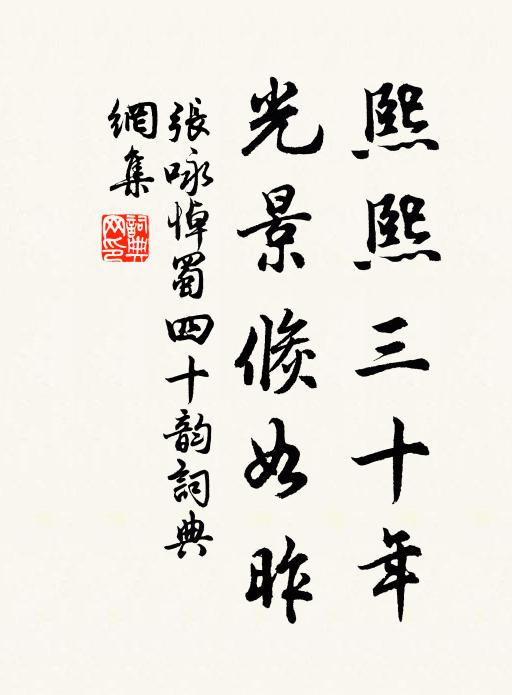 熙熙三十年
光景倐如昨
張咏悼蜀四十韵詞典
網集
詞典
网印